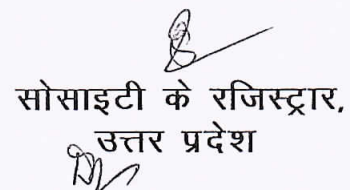 सोसाइटी के रजिस्ट्रार,
उत्तर प्रदेश